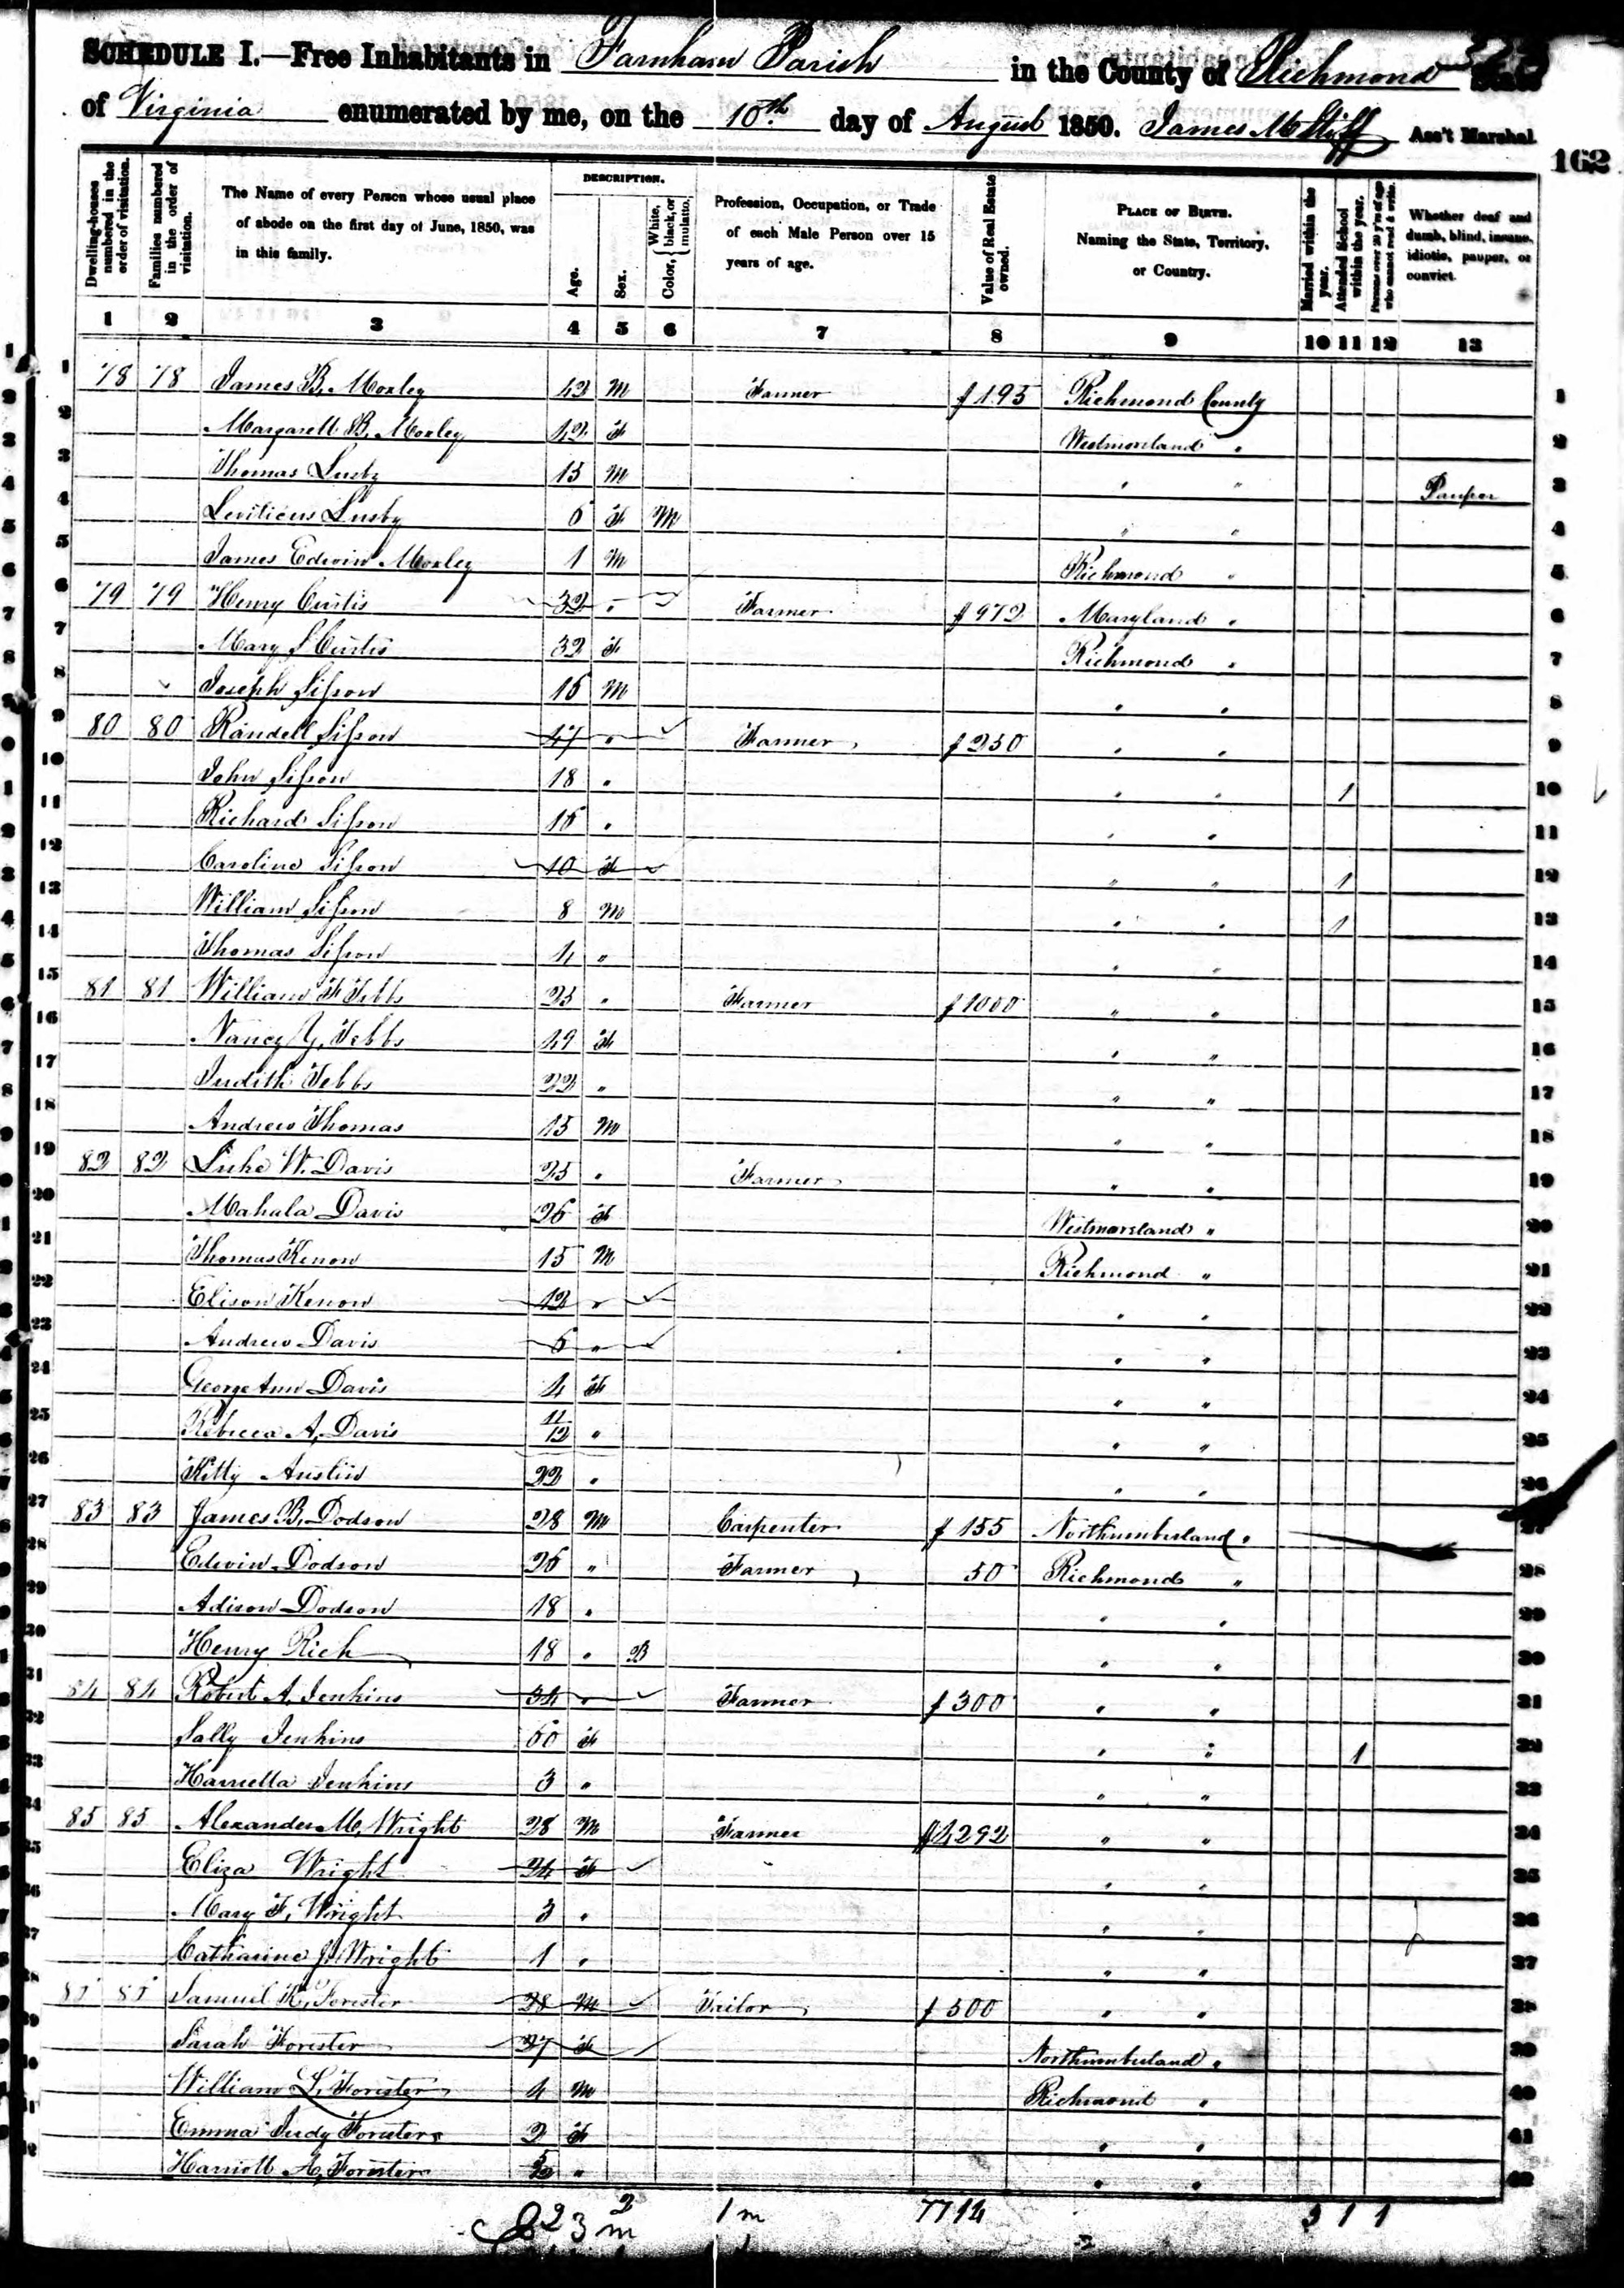 SCHEDULE I.—Free Inhabitants in Farnham Parish in the County of Richmond State
of Virginia enumerated by me, on the 10th day of August 1850. James M Shiff Ass't Marshal.
162
Dwelling-houses numbered in the order of visitation.
Families numbered in the order of visitation.
The Name of every Person whose usual place of abode on the first day of June, 1850, was in this family.
DESCRIPTION.
Age.
Sex.
Color, { White, black, or mulatto.
Profession, Occupation, or Trade of each Male Person over 15 years of age.
Value of Real Estate owned.
PLACE OF BIRTH. Naming the State, Territory, or Country.
Married within the year.
Attended School within the year.
Persons over 20 y'rs of age who cannot read & write.
Whether deaf and dumb, blind, insane, idiotic, pauper, or convict.
1 2 3 4 5 6 7 8 9 10 11 12 13
1 78 78 James B. Moxley 42 M Farmer $195 Richmond County 1
2 Margarett B. Moxley 42 F Westmorland " 2
3 Thomas Lusby 15 M " " Pauper 3
4 Leviticus Lusby 6 F M " " 4
5 James Edwin Moxley 1 M Richmond " 5
6 79 79 Henry Curtis 32 " Farmer $972 Maryland " 6
7 Mary S Curtis 32 F Richmond " 7
8 Joseph Sisson 16 M " " 8
9 80 80 Randell Sisson 47 " Farmer $250 " " 9
10 John Sisson 18 " " " 1 10
11 Richard Sisson 16 " " " 11
12 Caroline Sisson 10 F " " 1 12
13 William Sisson 8 M " " 1 13
14 Thomas Sisson 4 " " " 14
15 81 81 William F Tebbs 25 " Farmer $1000 " " 15
16 Nancy Y. Tebbs 49 F " " 16
17 Judith Tebbs 22 " " " 17
18 Andrew Thomas 15 M " " 18
19 82 82 Luke W. Davis 25 " Farmer " " 19
20 Mahala Davis 26 F Westmorsland " 20
21 Thomas Kenon 15 M Richmond " 21
22 Elison Kenon 12 " " " 22
23 Andrew Davis 6 " " " 23
24 George Ann Davis 4 F " " 24
25 Rebecca A. Davis 11/12 " " " 25
26 Kitty Austin 22 " " " 26
27 83 83 James B. Dodson 28 M Carpenter $155 Northumberland "
28 Edwin Dodson 26 " Farmer 50 Richmond " 28
29 Adison Dodson 18 " " " 29
30 Henry Rich 18 " B " " 30
31 84 84 Robert A. Jenkins 34 " Farmer $300 " " 31
32 Sally Jenkins 60 F " " 1 32
33 Harriella Jenkins 3 " " " 33
34 85 85 Alexander M. Wright 28 M Farmer $4292 " " 34
35 Eliza Wright 24 F " " 35
36 Mary F. Wright 3 " " " 36
37 Catharine J. Wright 1 " " " 37
38 Samuel H. Forester 28 M Tailor $500 " " 38
39 Sarah Forester 27 F Northumberland " 39
40 William L. Forester 4 M Richmond " 40
41 Emma Judy Forester 2 F " " 41
Harriott A. Forester " " " 42
23 3 2 m 1 m 7714 3 1 1